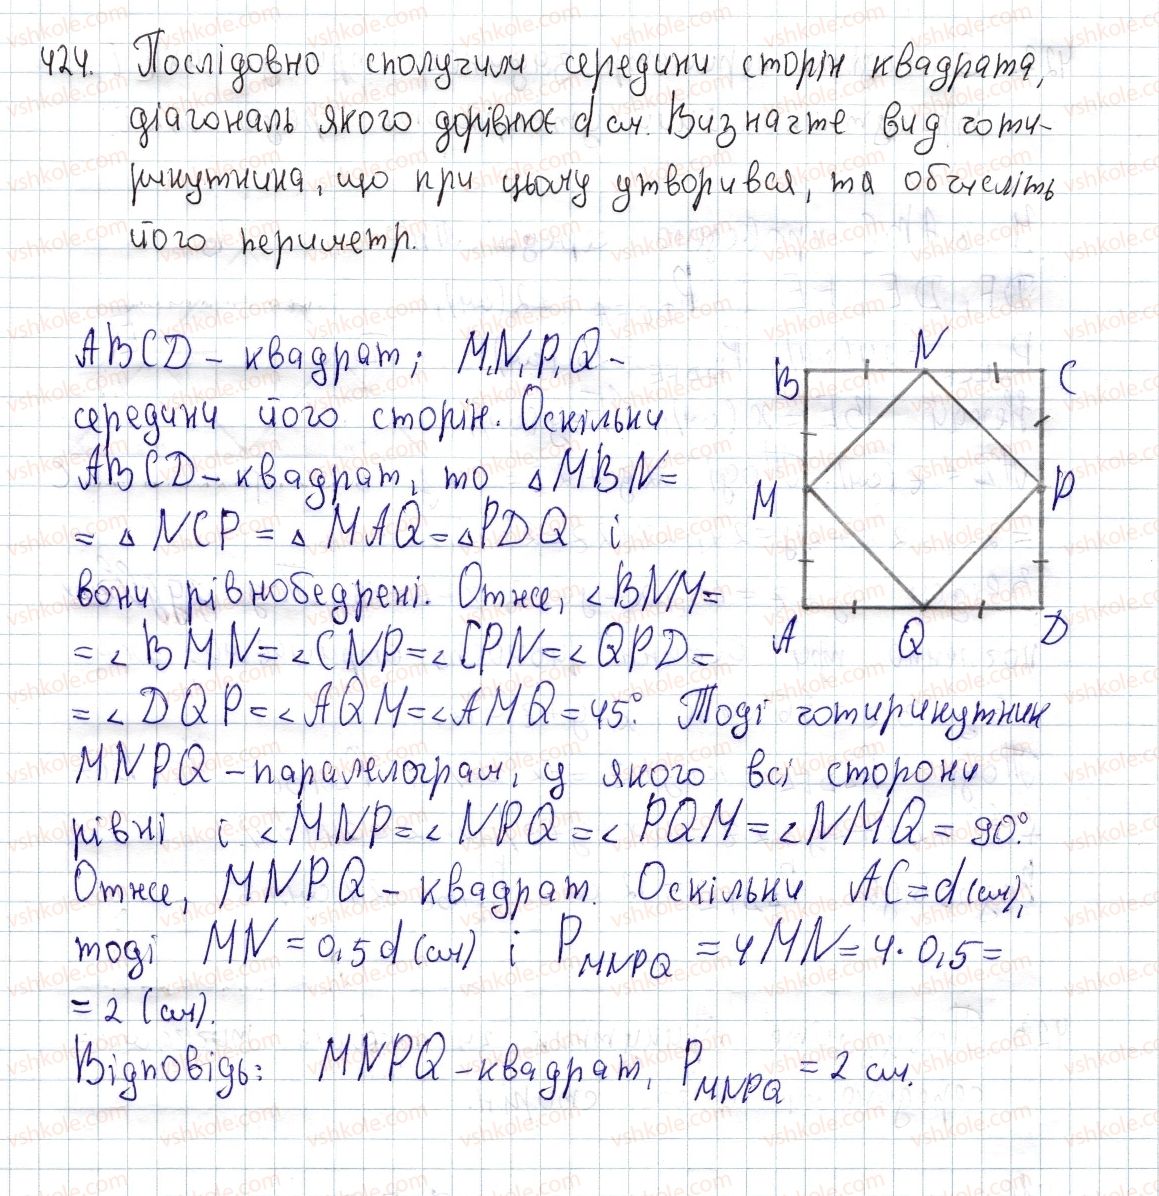 424. Послідовно сполучили середини сторін квадрата,
діагональ якого дорівнює d см. Визначте вид чоти-
рикутника, що при цьому утворився, та обчисліть
його периметр.
ABCD - квадрат; M, N, P, Q -
середини його сторін. Оскільки
ABCD - квадрат, то △MBN =
= △NCP = △MAQ = △PDQ і
вони рівнобедрені. Отже, ∠BNM =
= ∠BMN = ∠CNP = ∠CPN = ∠QPD =
= ∠DQP = ∠AQM = ∠AMQ = 45°. Тоді чотирикутник
MNPQ - паралелограм, у якого всі сторони
рівні і ∠MNP = ∠NPQ = ∠PQM = ∠NMQ = 90°.
Отже, MNPQ - квадрат. Оскільки AC = d (см),
тоді MN = 0,5d (см) і P MNPQ = 4MN = 4 · 0,5 =
= 2 (см).
Відповідь: MNPQ - квадрат, P MNPQ = 2 см.
B N C
M P
A Q D
vshkole.com